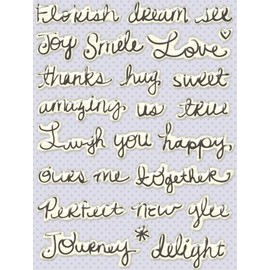 Florish dream see
Joy Smile Love
thanks hug sweet
amazing us true
Laugh you happy
ours me together
Perfect new glee
Journey * delight